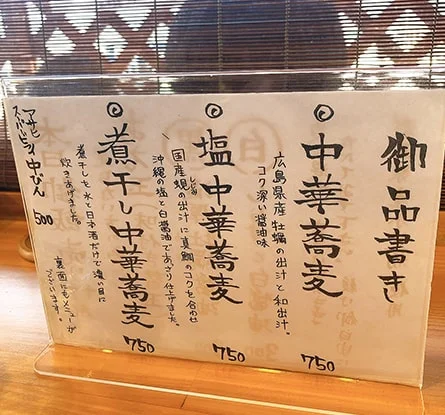 御品書き
◎中華蕎麦
広島県産牡蠣の出汁と和出汁。
コク深い醤油味
750
◎塩中華蕎麦
国産蜆の出汁に真鯛のコクを合わせ
しじみ
沖縄の塩と白醤油であっさり仕上げました。
750
◎煮干し中華蕎麦
煮干しを水と日本酒だけで濃い目に
炊きあげました。
750
アサヒ
スーパードライ中びん
500
裏面にもメニューが
ございます。